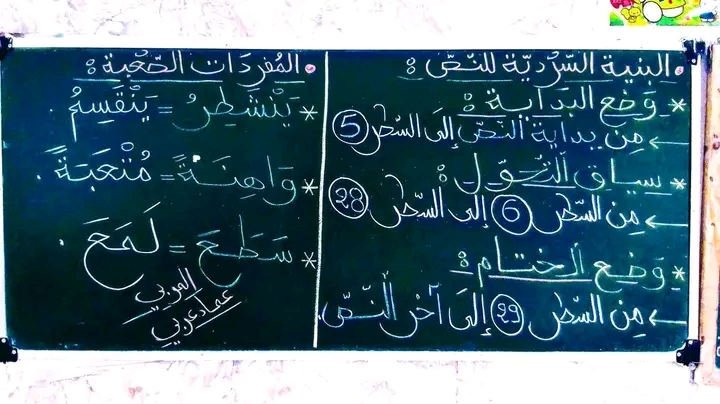 • البنية السّرديّة للنّصّ :
* وَضع البدَاية :
← مِن بداية النّصّ إلى السّطر 5
* سياق التّحوّل :
← مِن السّطر 6 إلى السّطر 28
* وَضع الختام :
← مِن السّطر 29 إلَى آخر النّصّ.
• المُفردَات الصّعْبة :
* يَنْشَطِرُ = يَنْقَسِمُ.
* وَاهِنَةً = مُتْعَبَةً.
* سَطَعَ = لَمَعَ.
المربي
عماد عربي